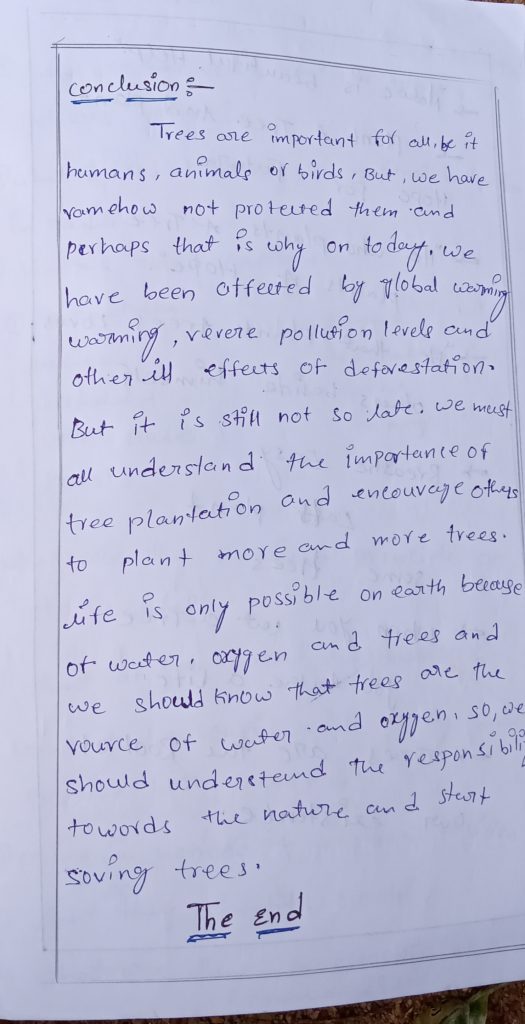 Conclusion :-
Trees are important for all, be it
humans, animals or birds, But, we have
ramehow not protected them and
perhaps that is why on today, we
have been affected by global warming
warming, revere pollution levels and
other ill effects of deforestation.
But it is still not so late. we must
all understand the importance of
tree plantation and encourage others
to plant more and more trees.
life is only possible on earth because
of water, oxygen and trees and
we should know that trees are the
rource of water and oxygen, so, we
should understand the responsibili
towords the nature and start
soving trees.
The End